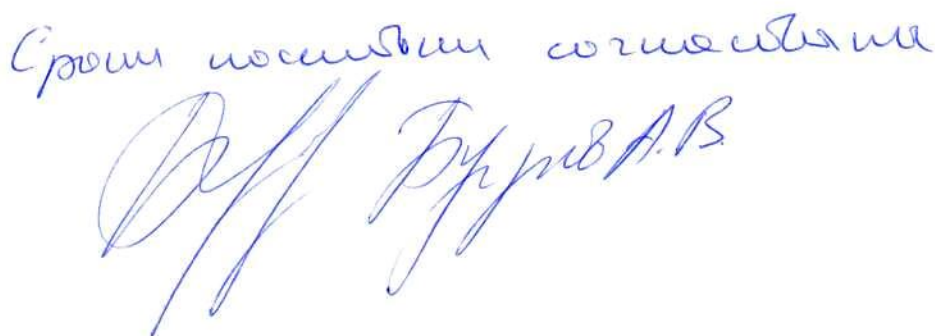 Сроки поставки согласованы
А.В.